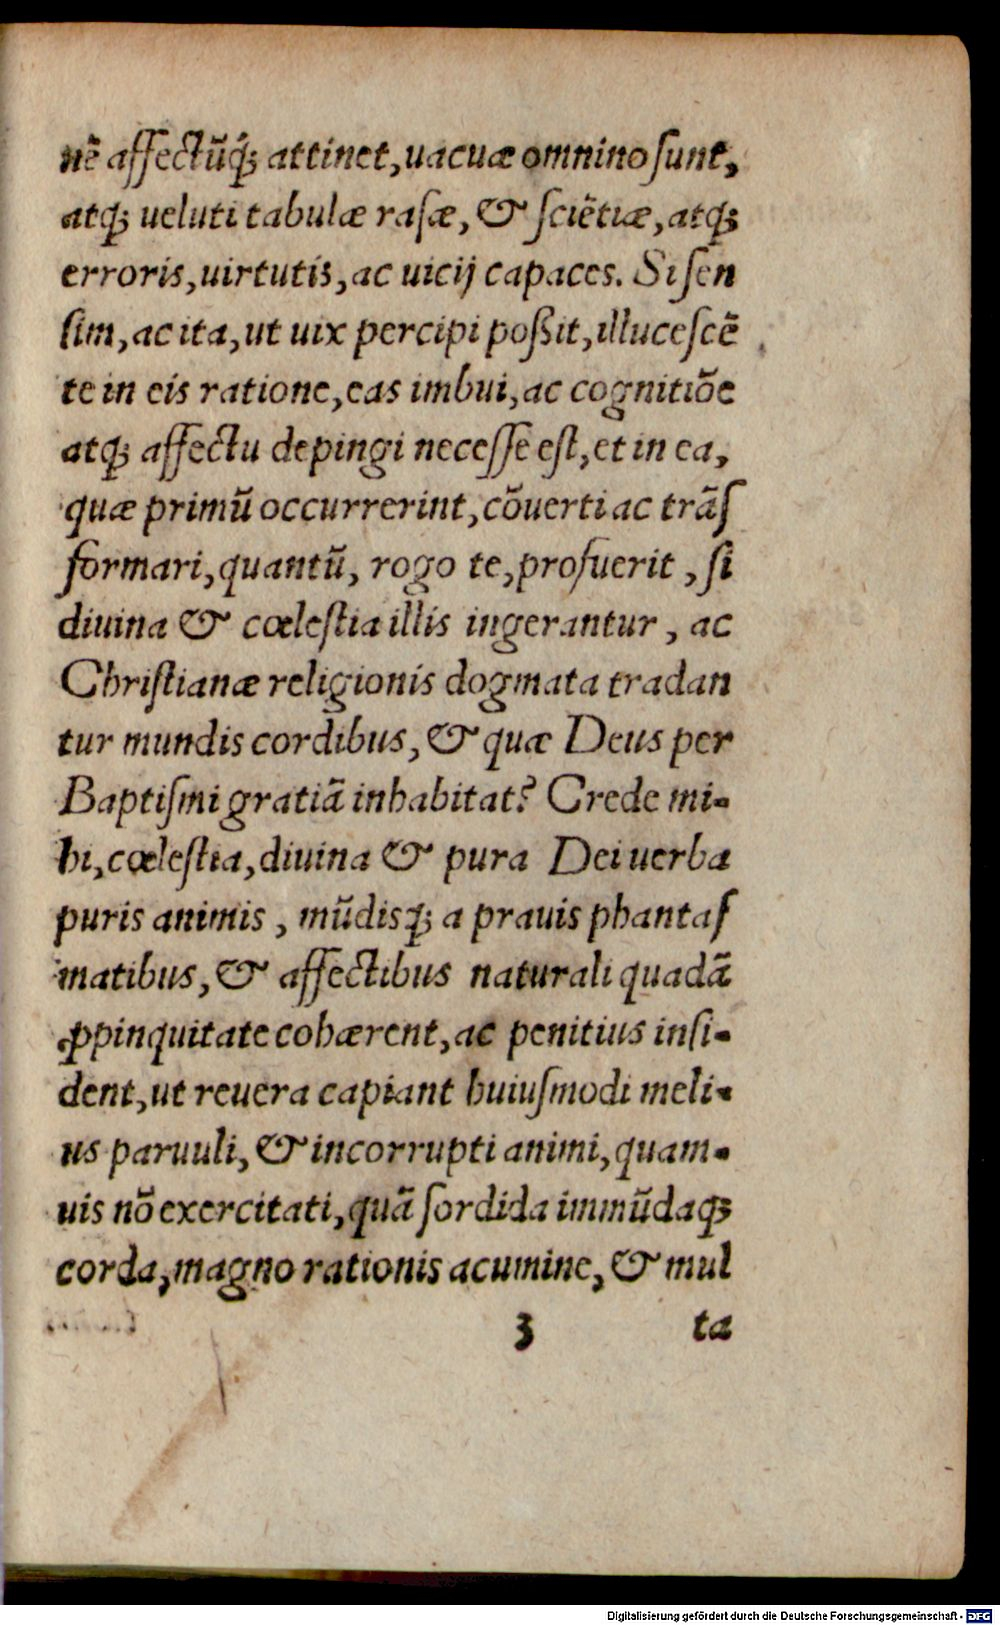 nē affectūq́ꝫ attinet, uacuæ omnino sunt,
atqꝫ ueluti tabulæ rasæ, & sciētiæ, atqꝫ
erroris, uirtutis, ac uicij capaces. Si sen
sim, ac ita, ut uix percipi poßit, illucescē
te in eis ratione, eas imbui, ac cognitiōe
atqꝫ affectu depingi necesse est, et in ea,
quæ primū occurrerint, cōuerti ac trās
formari, quantū, rogo te, profuerit, si
diuina & cœlestia illis ingerantur, ac
Christianæ religionis dogmata tradan
tur mundis cordibus, & quæ Deus per
Baptismi gratiā inhabitat? Crede mi-
hi, cœlestia, diuina & pura Dei uerba
puris animis, mūdisqꝫ a prauis phantas
matibus, & affectibus naturali quadā
ꝓpinquitate cohærent, ac penitius insi-
dent, ut reuera capiant huiusmodi meli-
us paruuli, & incorrupti animi, quam-
uis nō exercitati, quā sordida immūdaqꝫ
corda, magno rationis acumine, & mul
3 ta
Digitalisierung gefördert durch die Deutsche Forschungsgemeinschaft - DFG